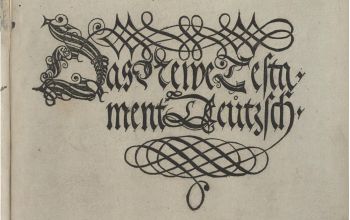 Das Newe Testa-
ment Deützsch.